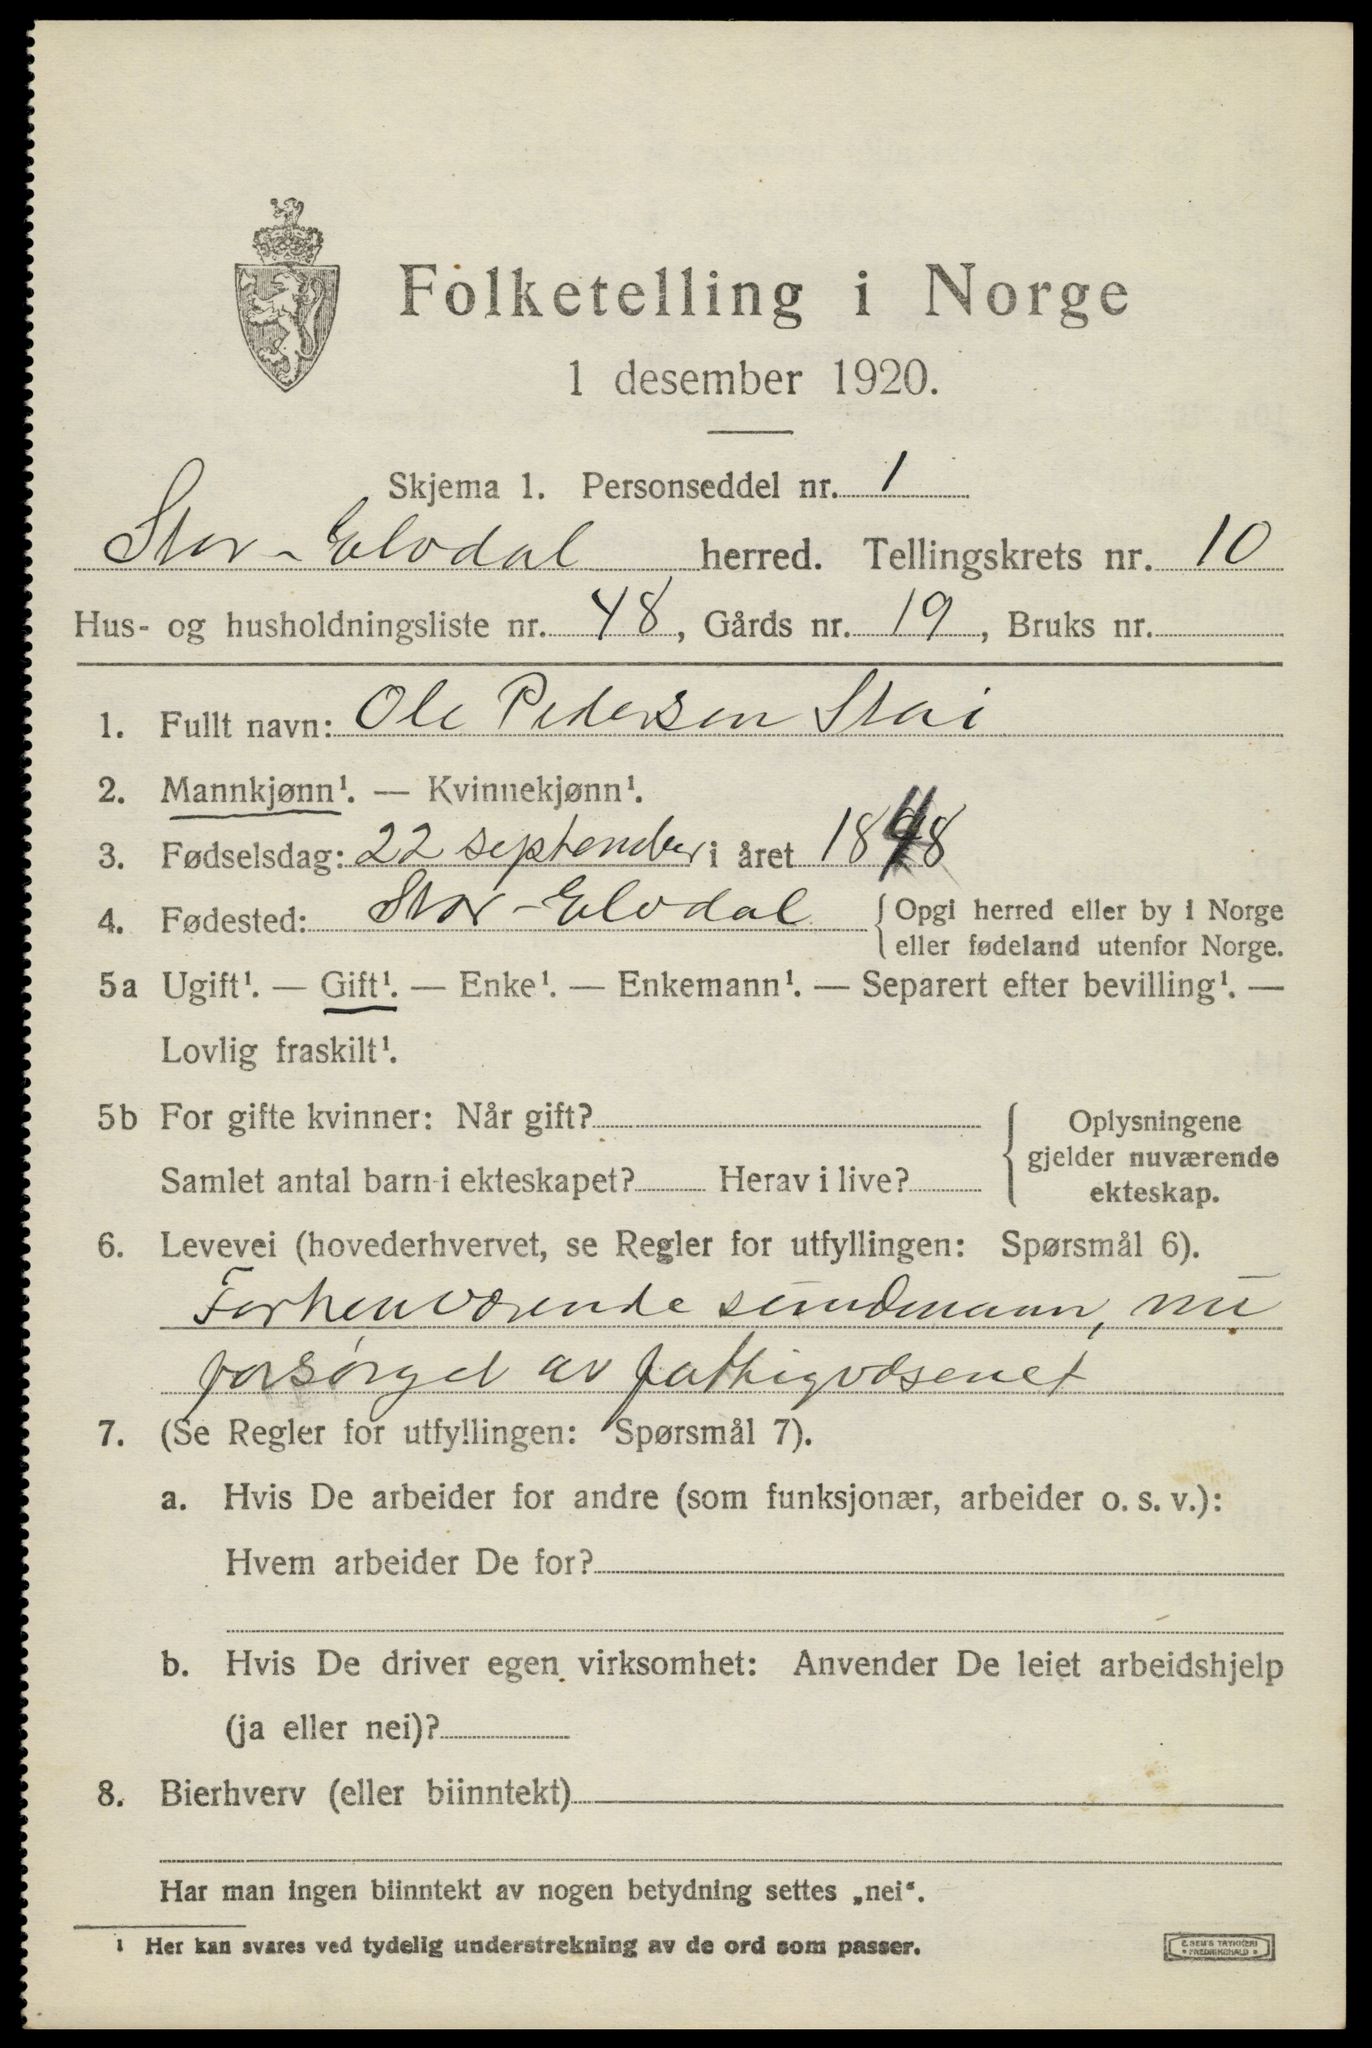 Folketelling i Norge
1 desember 1920.
Skjema 1. Personseddel nr. 1
Stor-Elvdal herred. Tellingskrets nr. 10
Hus- og husholdningsliste nr. 48, Gårds nr. 19, Bruks nr.
1. Fullt navn: Ole Pedersen Stai
2. Mannkjønn¹. — Kvinnekjønn¹.
3. Fødselsdag: 22 september i året 1848
4. Fødested: Stor-Elvdal {Opgi herred eller by i Norge
eller fødeland utenfor Norge.
5a Ugift¹. — Gift¹. — Enke¹. — Enkemann¹. — Separert efter bevilling¹. —
Lovlig fraskilt¹.
5b For gifte kvinner: Når gift?
Samlet antal barn i ekteskapet? Herav i live?
Oplysningene
gjelder nuværende
ekteskap.
6. Levevei (hovederhvervet, se Regler for utfyllingen: Spørsmål 6).
Forhenværende sundmann, nu
forsørget av fattigvæsenet
7. (Se Regler for utfyllingen: Spørsmål 7).
a. Hvis De arbeider for andre (som funksjonær, arbeider o. s. v.):
Hvem arbeider De for?
b. Hvis De driver egen virksomhet: Anvender De leiet arbeidshjelp
(ja eller nei)?
8. Bierhverv (eller biinntekt)
Har man ingen biinntekt av nogen betydning settes „nei“.
¹ Her kan svares ved tydelig understrekning av de ord som passer.
E. SEM'S TRYKKERI
• FREDRIKSHALD •